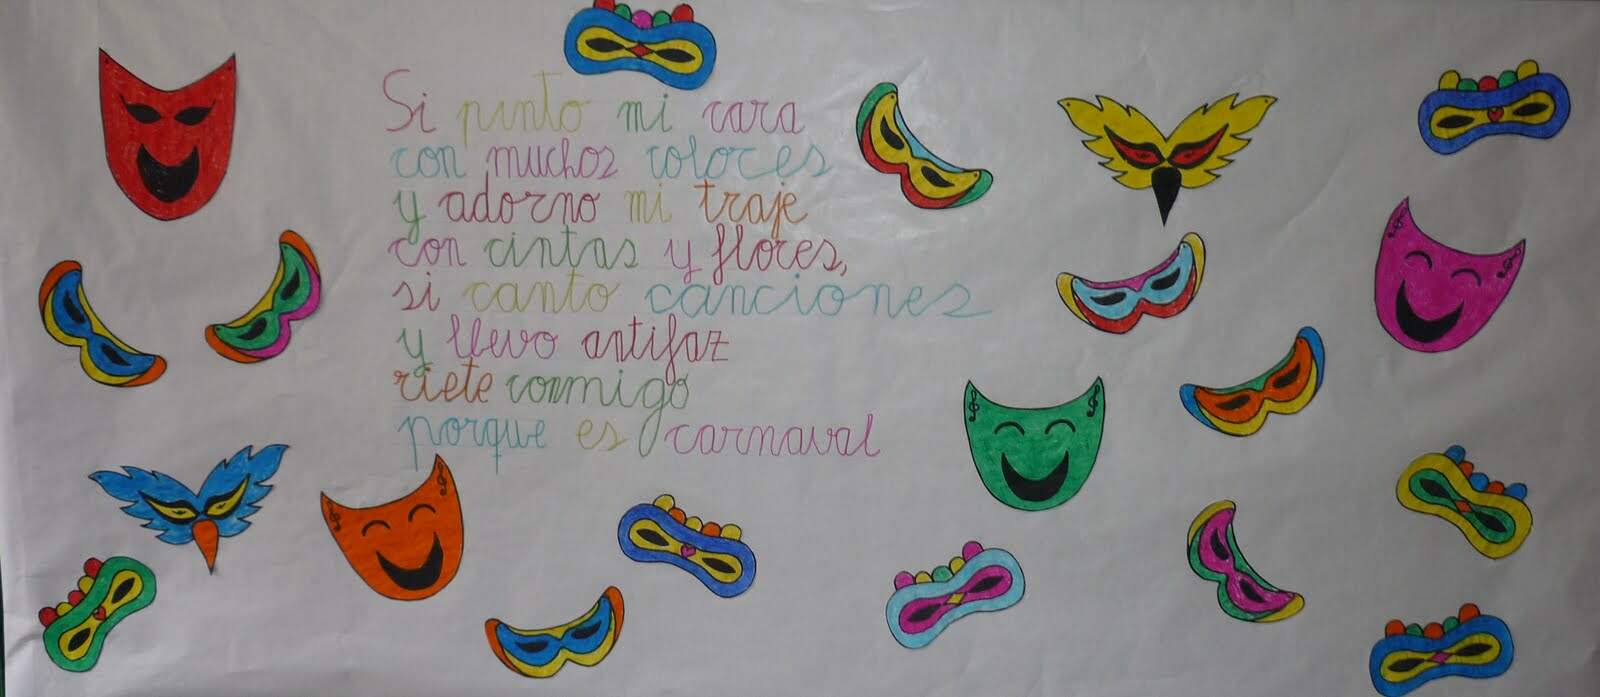 Si pinto mi cara
con muchos colores
y adorno mi traje
con cintas y flores,
si canto canciones
y llevo antifaz
ríete conmigo
porque es carnaval